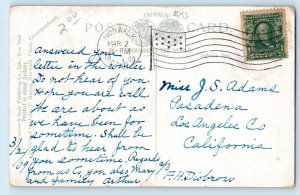 2.00
FAMOUS
POST CARD
NORWALK
MAR 2
PM
Correspondence.
answered your
letter in the winter
Do not hear of you
Hope you are well
We are about as
we have been for
sometime. Shall be
glad to hear from
you sometime. Regards
from us to you also Mary
and family Arthur
3/1
09
Miss J. S. Adams
Pasadena
Los Angeles Co
California
F. H. Disbrow